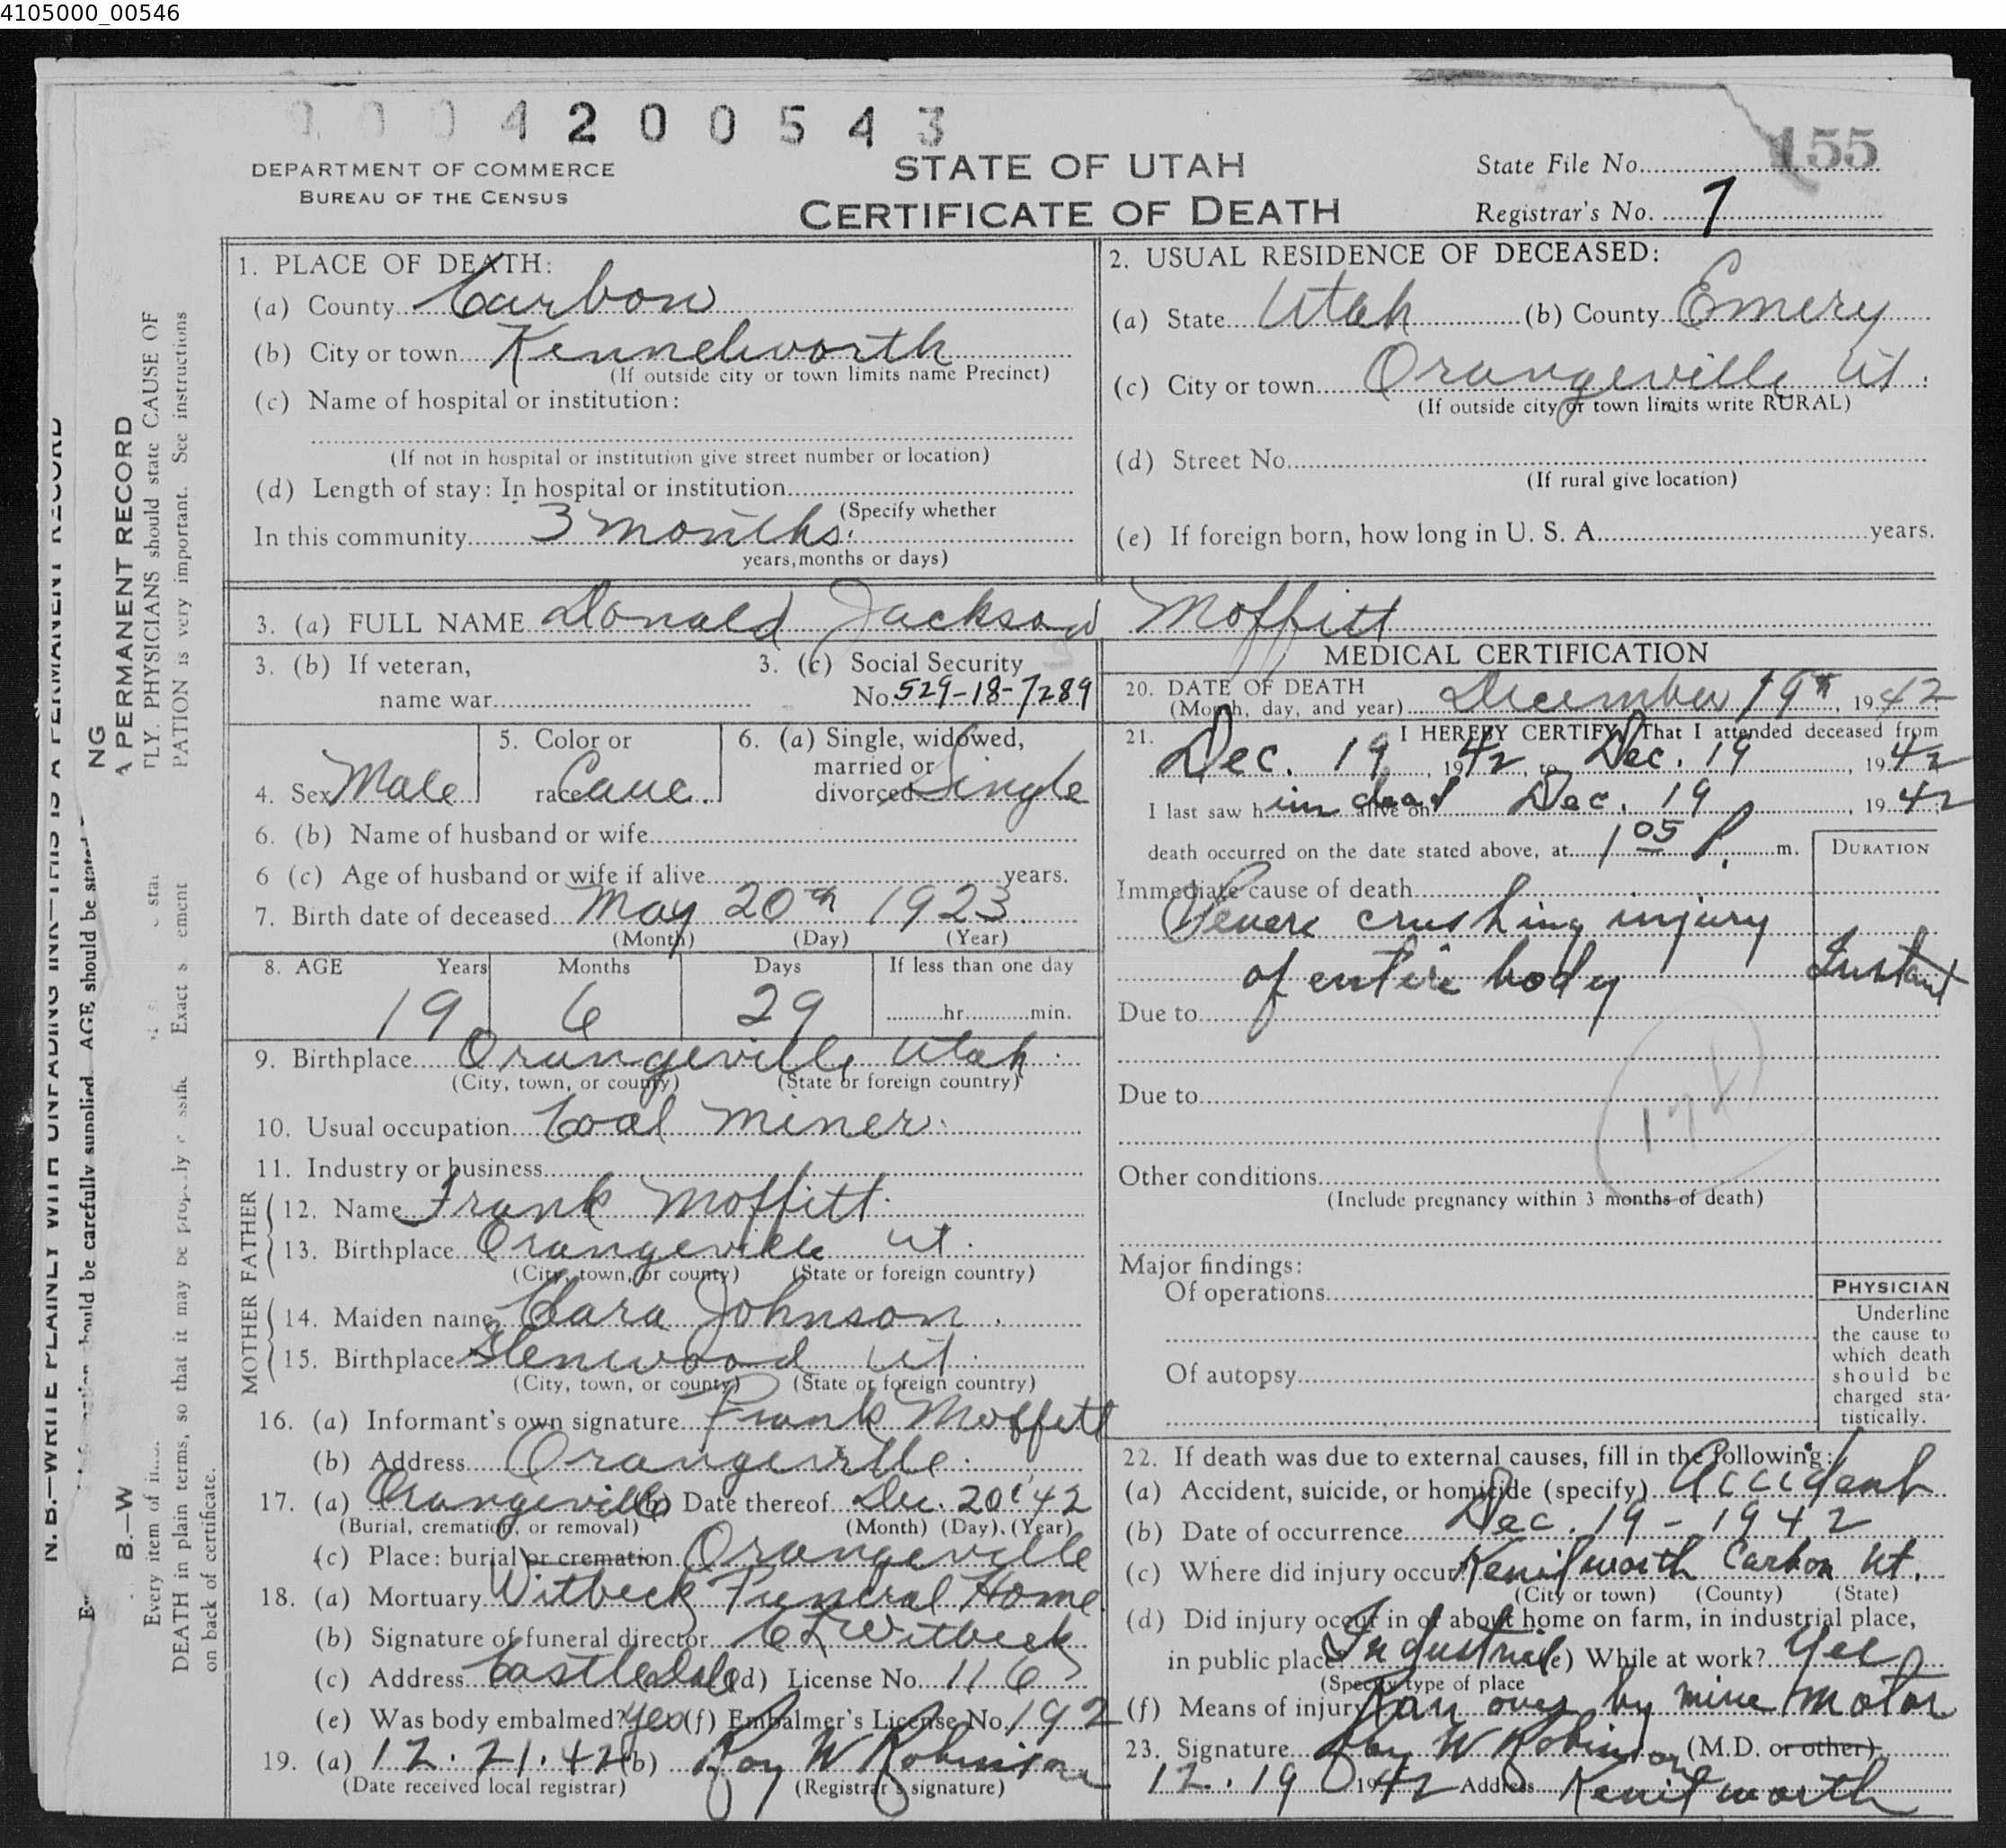 4105000_00546
0004200543
155
DEPARTMENT OF COMMERCE
BUREAU OF THE CENSUS
STATE OF UTAH
CERTIFICATE OF DEATH
State File No.
Registrar's No. 7
1. PLACE OF DEATH:
(a) County Carbon
(b) City or town Kennelworth
(If outside city or town limits name Precinct)
(c) Name of hospital or institution:
(If not in hospital or institution give street number or location)
(d) Length of stay: In hospital or institution
(Specify whether
In this community 3 months.
years, months or days)
2. USUAL RESIDENCE OF DECEASED:
(a) State Utah (b) County Emery
(c) City or town Orangeville Ut.
(If outside city or town limits write RURAL)
(d) Street No.
(If rural give location)
(e) If foreign born, how long in U. S. A. years.
3. (a) FULL NAME Donald Jackson Moffitt
3. (b) If veteran,
name war
3. (c) Social Security
No. 529-18-7289
4. Sex Male
5. Color or
race Cauc.
6. (a) Single, widowed,
married or
divorced Single
6. (b) Name of husband or wife
6 (c) Age of husband or wife if alive years.
7. Birth date of deceased May 20th 1923
(Month) (Day) (Year)
8. AGE Years Months Days If less than one day
19 6 29 hr. min.
9. Birthplace Orangeville Utah.
(City, town, or county) (State or foreign country)
10. Usual occupation Coal miner.
11. Industry or business
FATHER
12. Name Frank Moffitt.
13. Birthplace Orangeville Ut.
(City, town, or county) (State or foreign country)
MOTHER
14. Maiden name Clara Johnson.
15. Birthplace Glenwood Ut.
(City, town, or county) (State or foreign country)
16. (a) Informant's own signature Frank Moffitt
(b) Address Orangeville.
17. (a) Orangeville (b) Date thereof Dec. 20 '42
(Burial, cremation, or removal) (Month) (Day) (Year)
(c) Place: burial or cremation Orangeville
18. (a) Mortuary Witbeck Funeral Home
(b) Signature of funeral director C L Witbeck
(c) Address Castledale (d) License No. 116
(e) Was body embalmed? yes (f) Embalmer's License No. 192
19. (a) 12.21.42 (b) Roy W Robinson
(Date received local registrar) (Registrar's signature)
MEDICAL CERTIFICATION
20. DATE OF DEATH
(Month, day, and year) December 19th, 1942
21. I HEREBY CERTIFY, That I attended deceased from
Dec. 19, 1942, to Dec. 19, 1942
I last saw him dead alive on Dec. 19, 1942
death occurred on the date stated above, at 1 05 P. m.
DURATION
Immediate cause of death
Severe crushing injury
of entire body Instant
Due to
Due to
Other conditions
(Include pregnancy within 3 months of death)
Major findings:
Of operations
Of autopsy
PHYSICIAN
Underline
the cause to
which death
should be
charged sta-
tistically.
22. If death was due to external causes, fill in the following:
(a) Accident, suicide, or homicide (specify) Accident
(b) Date of occurrence Dec. 19 - 1942
(c) Where did injury occur? Kenilworth Carbon Ut.
(City or town) (County) (State)
(d) Did injury occur in or about home on farm, in industrial place,
in public place? Industrial (e) While at work? Yes
(Specify type of place
(f) Means of injury Ran over by mine motor
23. Signature Roy W Robinson (M.D. or other)
12. 19 1942 Address Kenilworth
A PERMANENT RECORD
PHYSICIANS should state CAUSE OF
PATION is very important. See instructions
N.B.—WRITE PLAINLY WITH UNFADING INK—THIS IS A PERMANENT RECORD
should be carefully supplied. AGE should be stated
Every item of
DEATH in plain terms, so that it may be properly
Exact
on back of certificate.